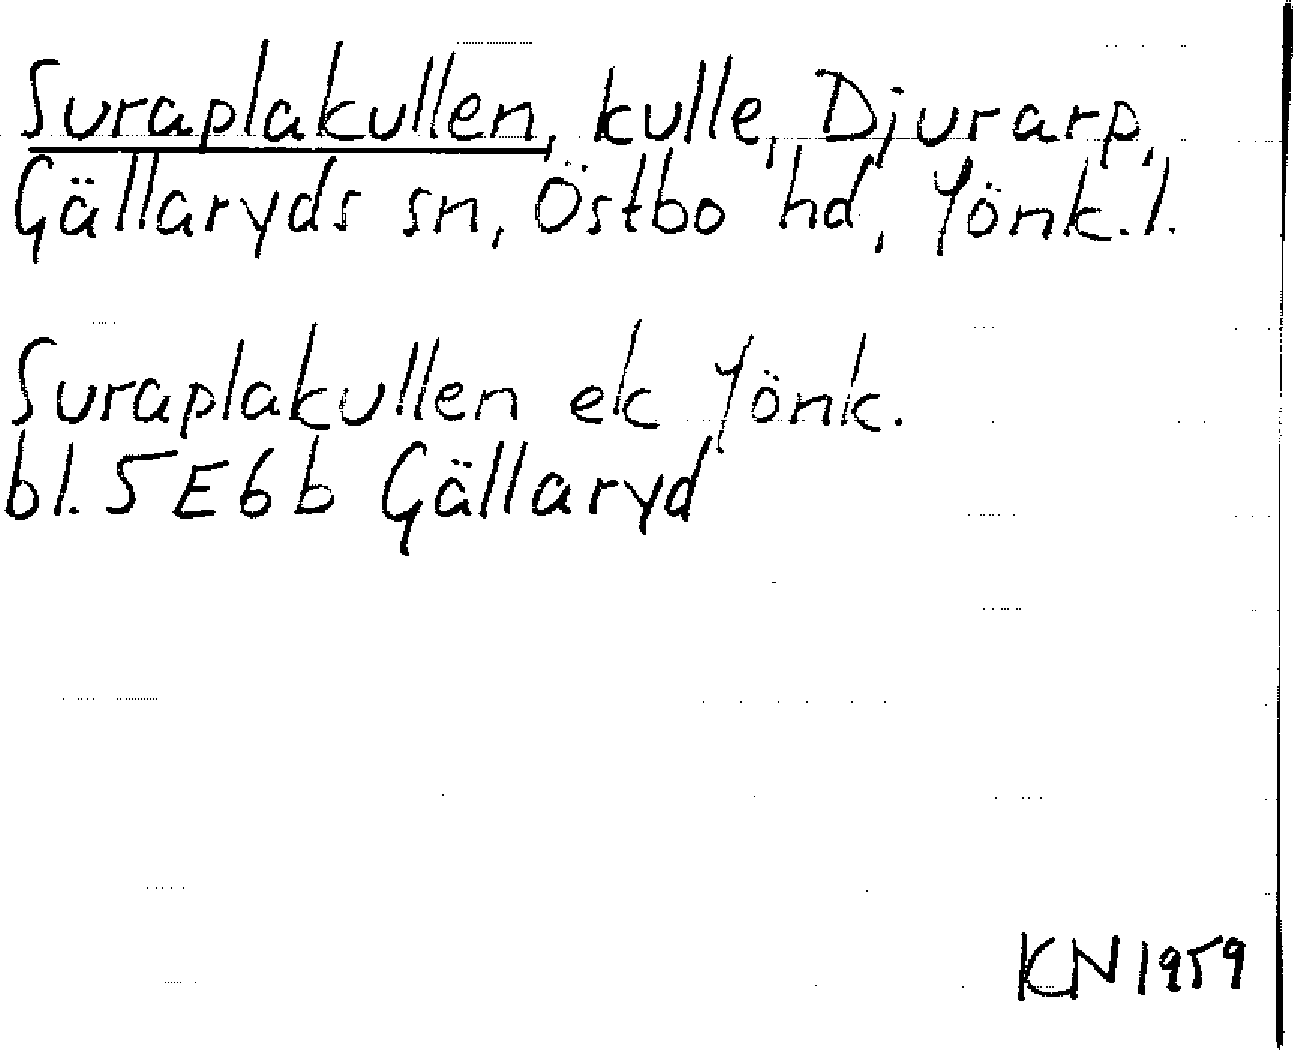 Suraplakullen, kulle, Djurarp,
Gällaryds sn, Östbo hd, Jönk.l.
Suraplakullen ek Jönk.
bl. 5E6b Gällaryd
KN 1959